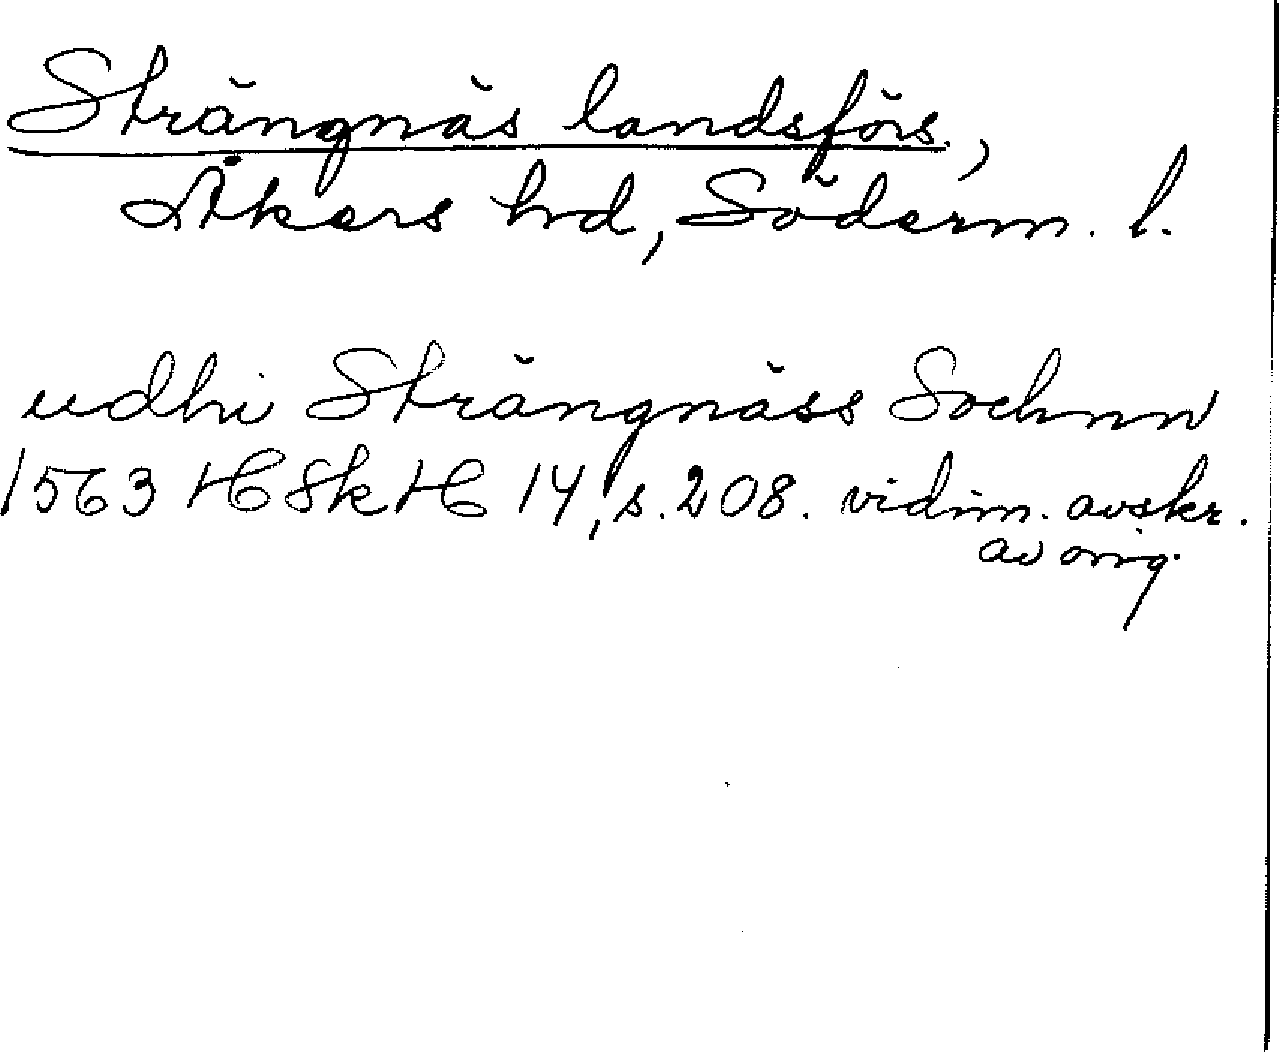 Strängnäs landsförs.,
Åkers hd, Söderm. l.
udhi Strängnäss Sochnn
1563 HSkH 14, s. 208. vidim. avskr.
av orig.